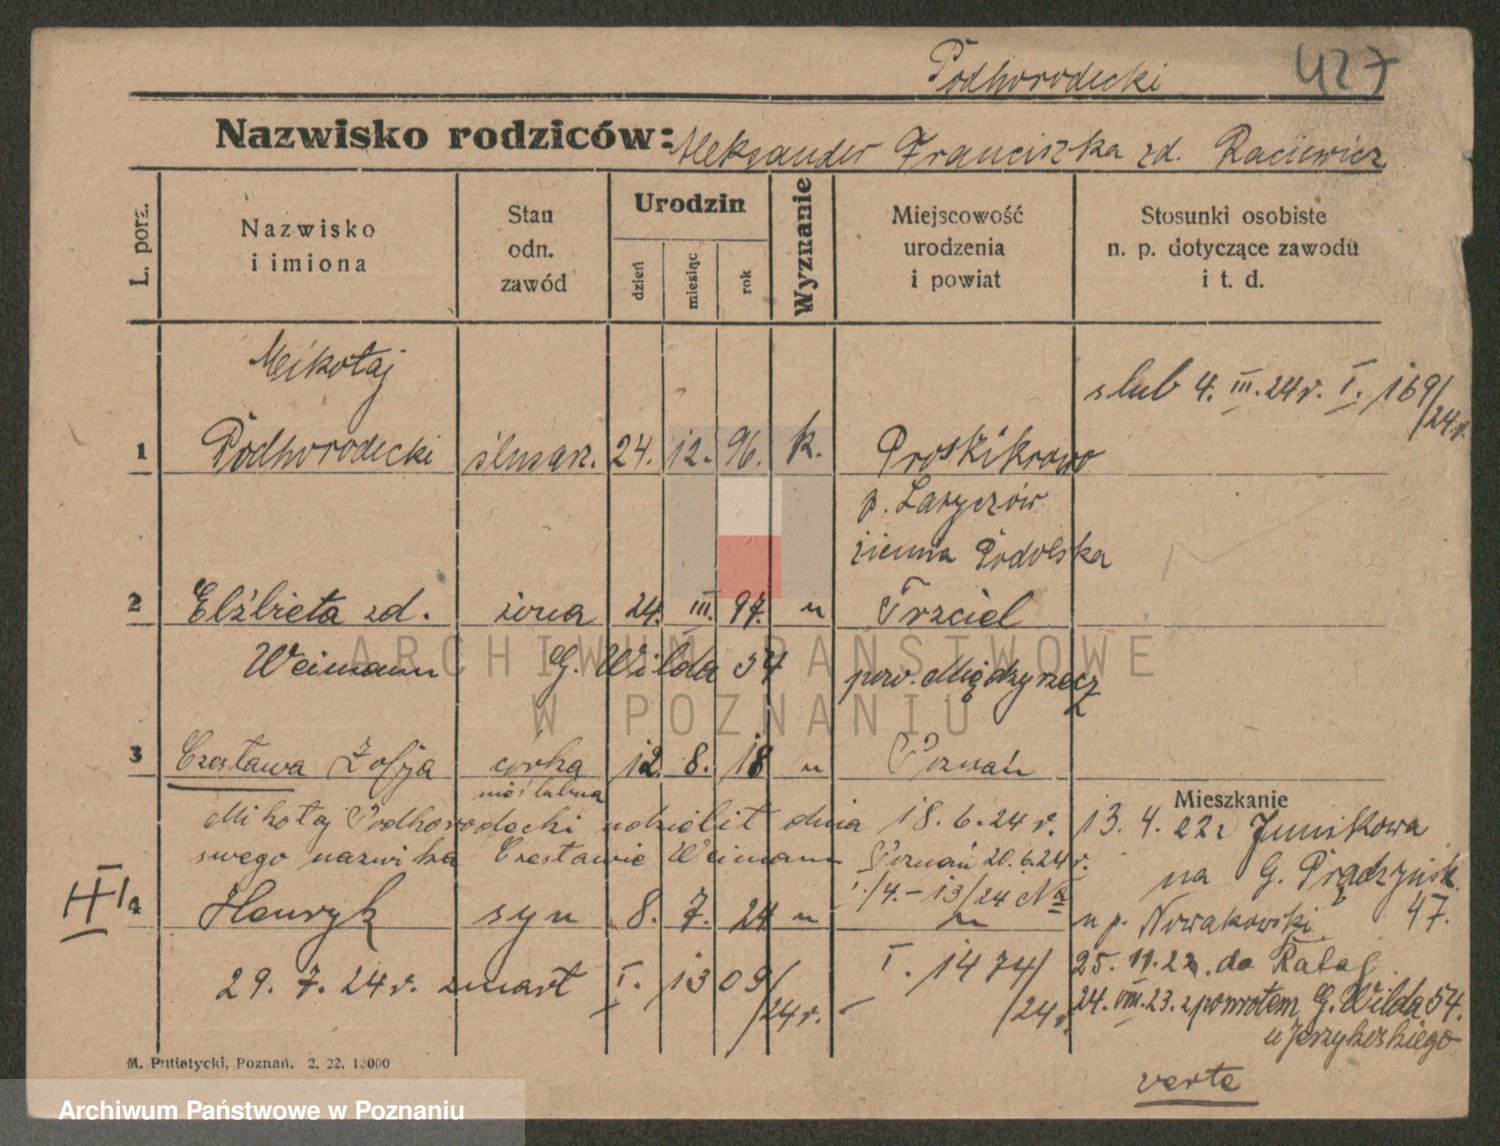 Podhorodecki 427
Nazwisko rodziców: Aleksander Franciszka zd. Raciewicz
L. porz.
Nazwisko i imiona
Stan odn. zawód
Urodzin
dzień miesiąc rok
Wyznanie
Miejscowość urodzenia i powiat
Stosunki osobiste n. p. dotyczące zawodu i t. d.
Mikołaj
ślub 4. III. 24 r. I. 169/24 r.
1 Podhorodecki ślusarz. 24. 12. 96. k. Proskikrowo
p. Latyczów
ziemia Podolska
2 Elżbieta zd. żona 24. III. 97. " Trzciel
Weimann G. Wilda 54 pow. Międzyrzecz
3 Czesława Zofja córka 12. 8. 18 " Poznań
nieślubna
Mieszkanie
Mikołaj Podhorodecki udzielił dnia 18. 6. 24 r.
13. 4. 22 z Junikowa
swego nazwiska Czesławie Weimann Poznań 20. 6. 24 r.
na G. Prądzyńsk. 47.
I./4. – 13/24 Na
III/4 Henryk syn 8. 7. 24 " "
u p. Nowakowski
29. 7. 24 r. zmarł I. 1309/24 r. – I. 1474/24 r.
25. 11. 22. do Rataj
24. VIII. 23. z powrotem G. Wilda 54.
u Jerzykoskiego
verte
M. Putiatycki, Poznań. 2. 22. 10000
ARCHIWUM PAŃSTWOWE
W POZNANIU
Archiwum Państwowe w Poznaniu